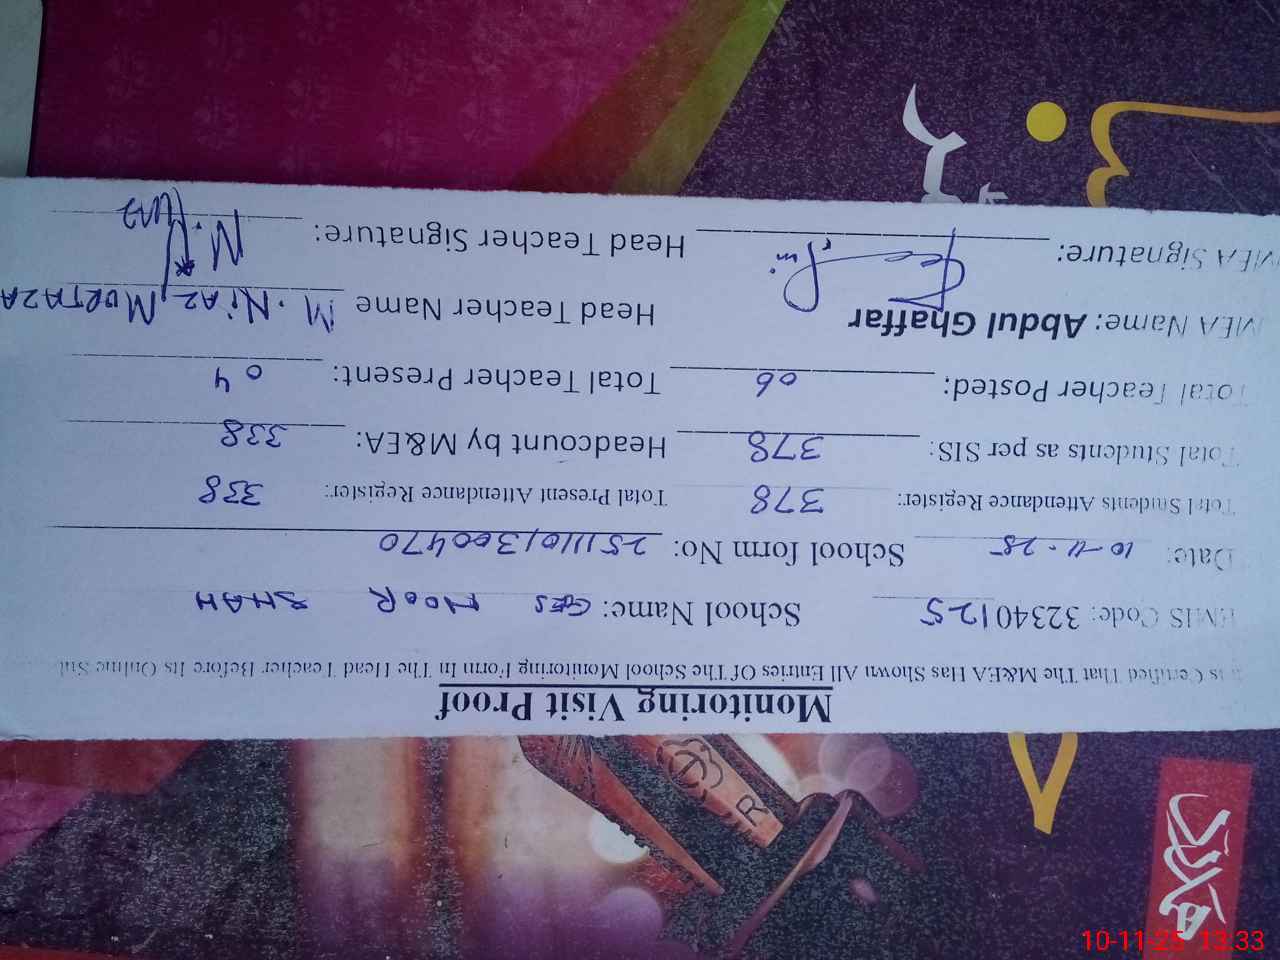 Monitoring Visit Proof
is Certified That The M&EA Has Shown All Entries Of The School Monitoring Form In The Head Teacher Before Its Online
EMIS Code: 32340125 School Name: GES NOOR SHAH
Date: 10-11-25 School form No: 25111101300470
Total Students Attendance Register: 378 Total Present Attendance Register: 338
Total Students as per SIS: 378 Headcount by M&EA: 338
Total Teacher Posted: 06 Total Teacher Present: 04
MEA Name: Abdul Ghaffar Head Teacher Name M. NIAZ MURTAZA
MEA Signature: Head Teacher Signature: M.
R
10-11-25 13:33